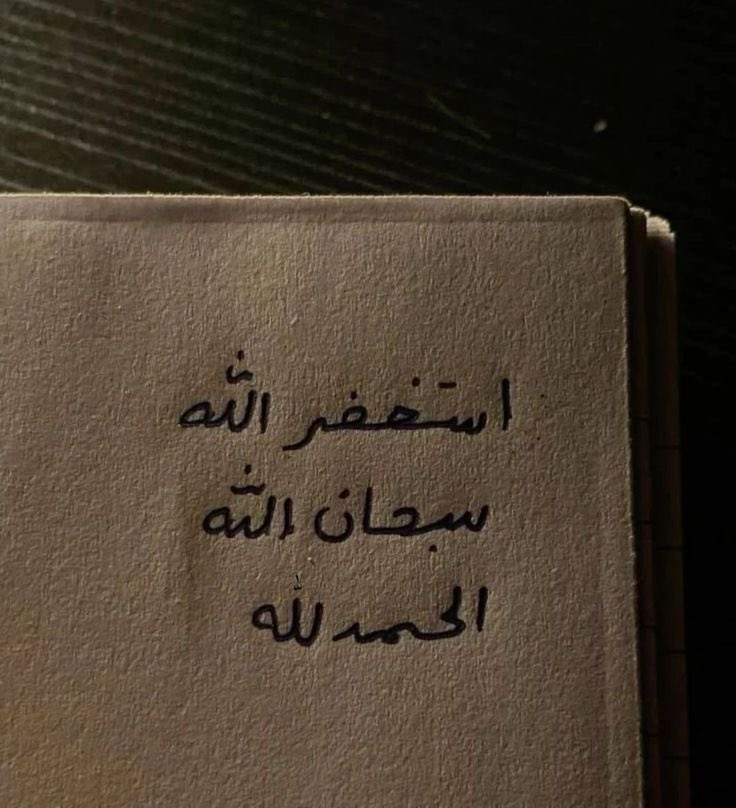 استغفر الله
سبحان الله
الحمد لله